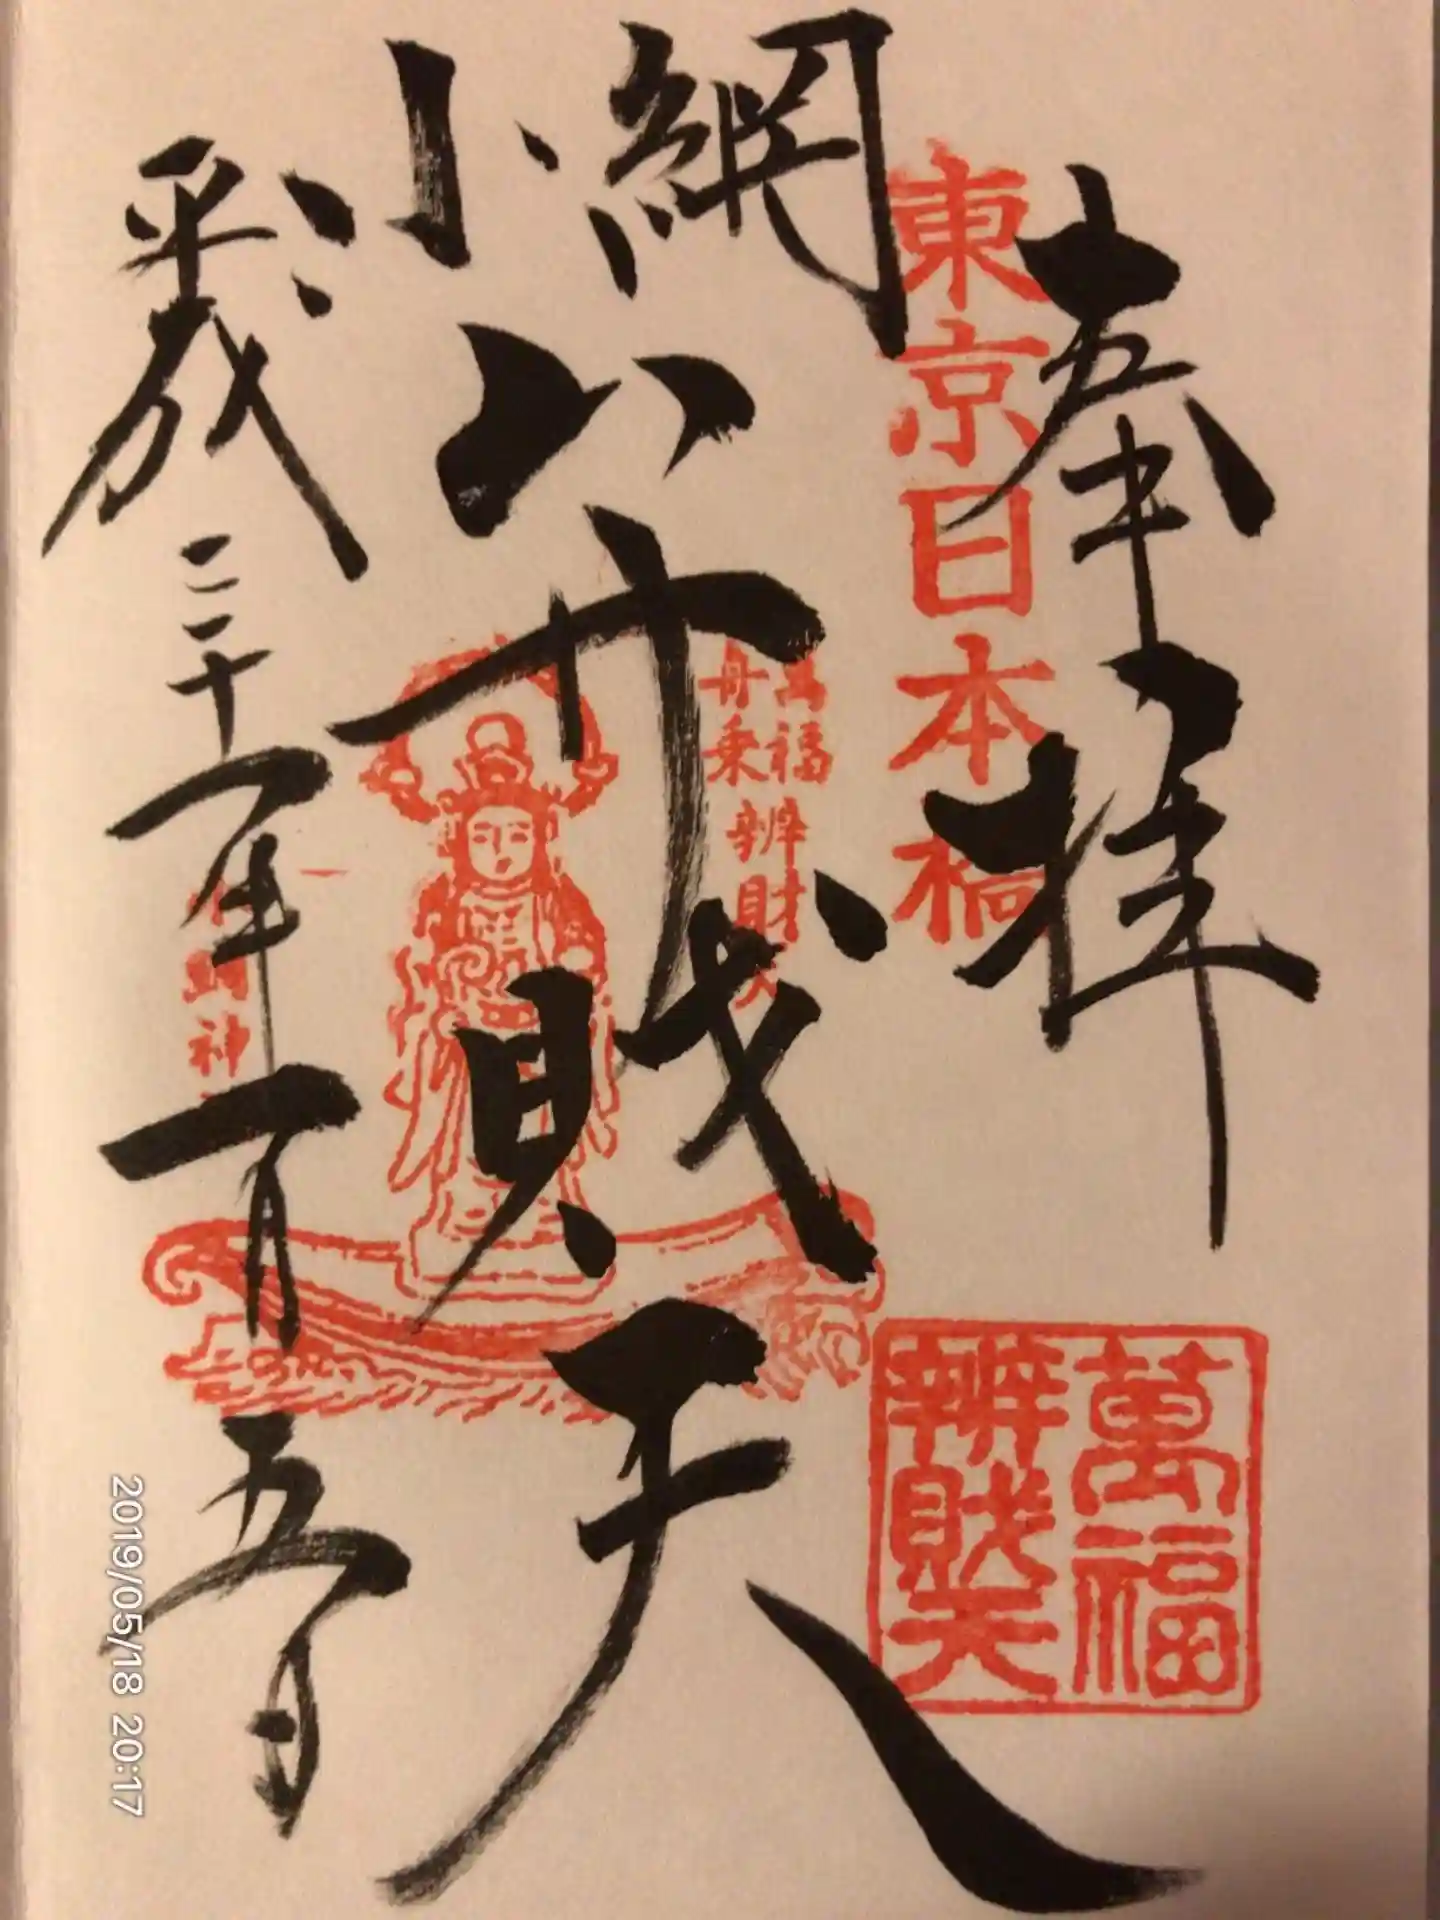 奉拝
東京日本橋
小網
弁財天
萬福
舟乗
辨財天
平成三十一年一月五日
神
萬福
辨財天
2019/05/18 20:17